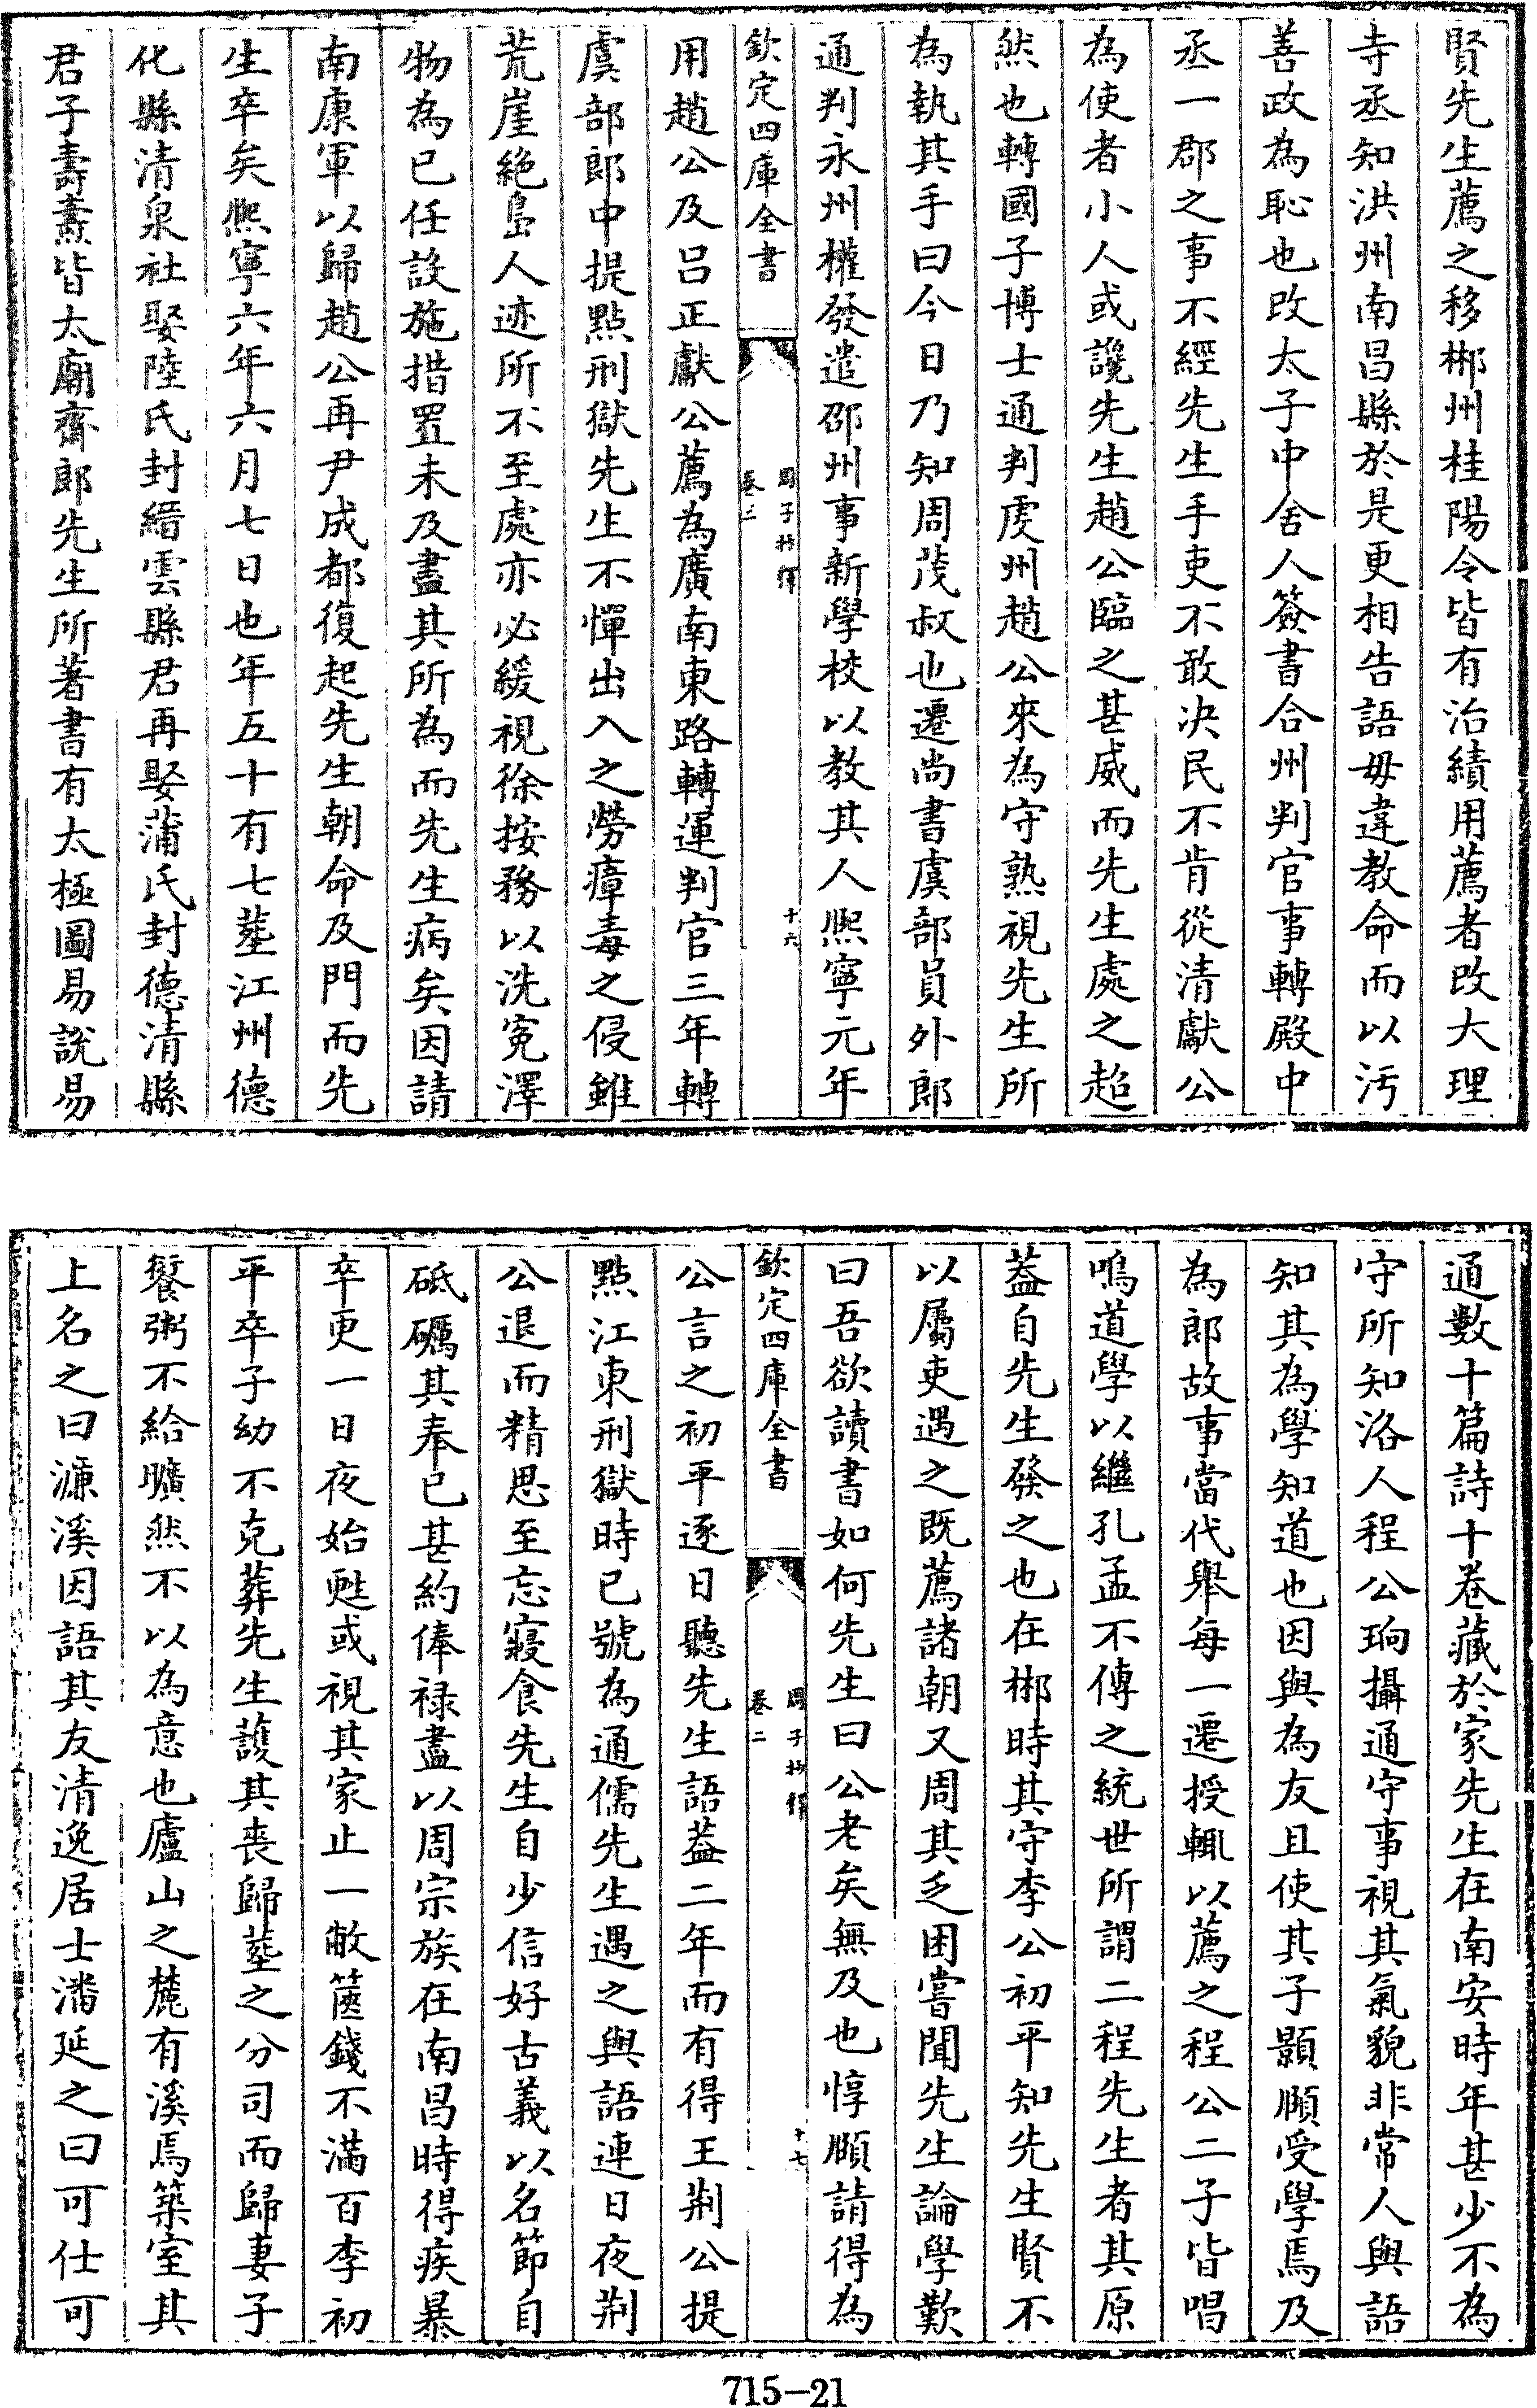 賢先生薦之移郴州桂陽令皆有治績用薦者改大理
寺丞知洪州南昌縣於是更相告語毋違教命而以汚
善政為恥也改太子中舍人簽書合州判官事轉殿中
丞一郡之事不經先生手吏不敢決民不肯從清獻公
為使者小人或讒先生趙公臨之甚威而先生處之超
然也轉國子博士通判虔州趙公來為守熟視先生所
為執其手曰今日乃知周茂叔也遷尚書虞部員外郎
通判永州權發遣邵州事新學校以教其人熙寧元年
欽定四庫全書
周子抄釋
卷二
十六
用趙公及呂正獻公薦為廣南東路轉運判官三年轉
虞部郎中提點刑獄先生不憚出入之勞瘴毒之侵雖
荒崖絶島人迹所不至處亦必緩視徐按務以洗寃澤
物為已任設施措置未及盡其所為而先生病矣因請
南康軍以歸趙公再尹成都復起先生朝命及門而先
生卒矣熙寧六年六月七日也年五十有七塟江州德
化縣清泉社娶陸氏封縉雲縣君再娶蒲氏封德清縣
君子壽燾皆太廟齋郎先生所著書有太極圖易說易
通數十篇詩十卷藏於家先生在南安時年甚少不為
守所知洛人程公珦攝通守事視其氣貌非常人與語
知其為學知道也因與為友且使其子顥頤受學焉及
為郎故事當代舉每一遷授輒以薦之程公二子皆唱
鳴道學以繼孔孟不傳之統世所謂二程先生者其原
葢自先生發之也在郴時其守李公初平知先生賢不
以屬吏遇之既薦諸朝又周其乏困嘗聞先生論學歎
曰吾欲讀書如何先生曰公老矣無及也惇頤請得為
欽定四庫全書
周子抄釋
卷二
十七
公言之初平逐日聽先生語葢二年而有得王荆公提
點江東刑獄時已號為通儒先生遇之與語連日夜荆
公退而精思至忘寢食先生自少信好古義以名節自
砥礪其奉已甚約俸祿盡以周宗族在南昌時得疾暴
卒更一日夜始甦或視其家止一敝篋錢不滿百李初
平卒子幼不克葬先生護其喪歸塟之分司而歸妻子
饘粥不給曠然不以為意也廬山之麓有溪焉築室其
上名之曰濂溪因語其友清逸居士潘延之曰可仕可
715-21